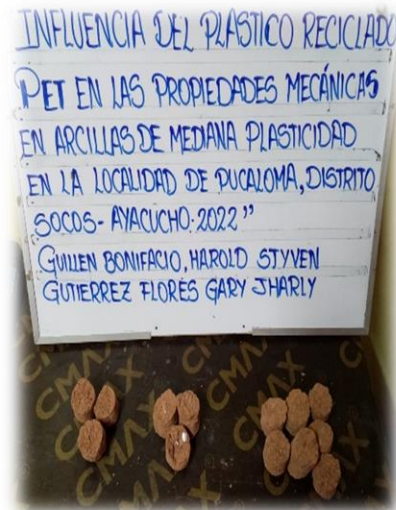 INFLUENCIA DEL PLASTICO RECICLADO
PET EN LAS PROPIEDADES MECÁNICAS
EN ARCILLAS DE MEDIANA PLASTICIDAD
EN LA LOCALIDAD DE PUCALOMA, DISTRITO
SOCOS - AYACUCHO. 2022"
GUILLEN BONIFACIO, HAROLD STYVEN
GUTIERREZ FLORES GARY JHARLY
CMAX CMAX CMAX